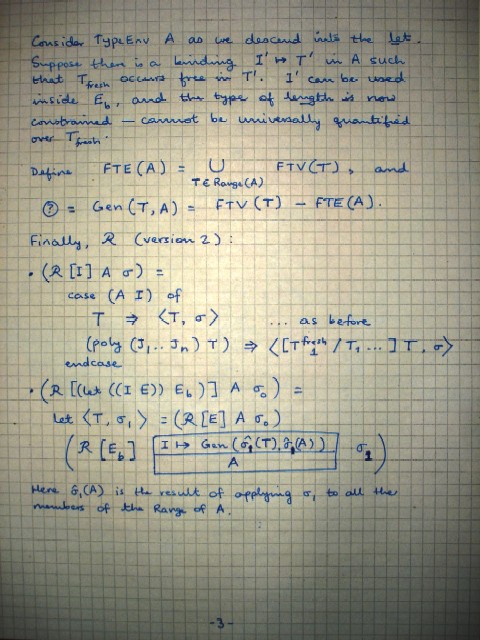 Consider TypeEnv A as we descend into the let.
Suppose there is a binding I' ↦ T' in A such
that T_fresh occurs free in T'. I' can be used
inside E_b, and the type of length is now
constrained — cannot be universally quantified
over T_fresh.
Define FTE(A) = ∪ FTV(T), and
T∈Range(A)
? = Gen(T,A) = FTV(T) - FTE(A).
Finally, R (version 2):
• (R [I] A σ) =
case (A I) of
T ⇒ ⟨T, σ⟩ ... as before
(poly (J_1.. J_n) T) ⇒ ⟨[T_1^fresh / T_1 ...] T, σ⟩
endcase
• (R [(let ((I E)) E_b)] A σ_0) =
let ⟨T, σ_1⟩ = (R [E] A σ_0)
(R [E_b] I ↦ Gen(σ̂_1(T), σ̂_1(A)) σ_1)
A
Here σ̂_1(A) is the result of applying σ_1 to all the
members of the Range of A.
-3-